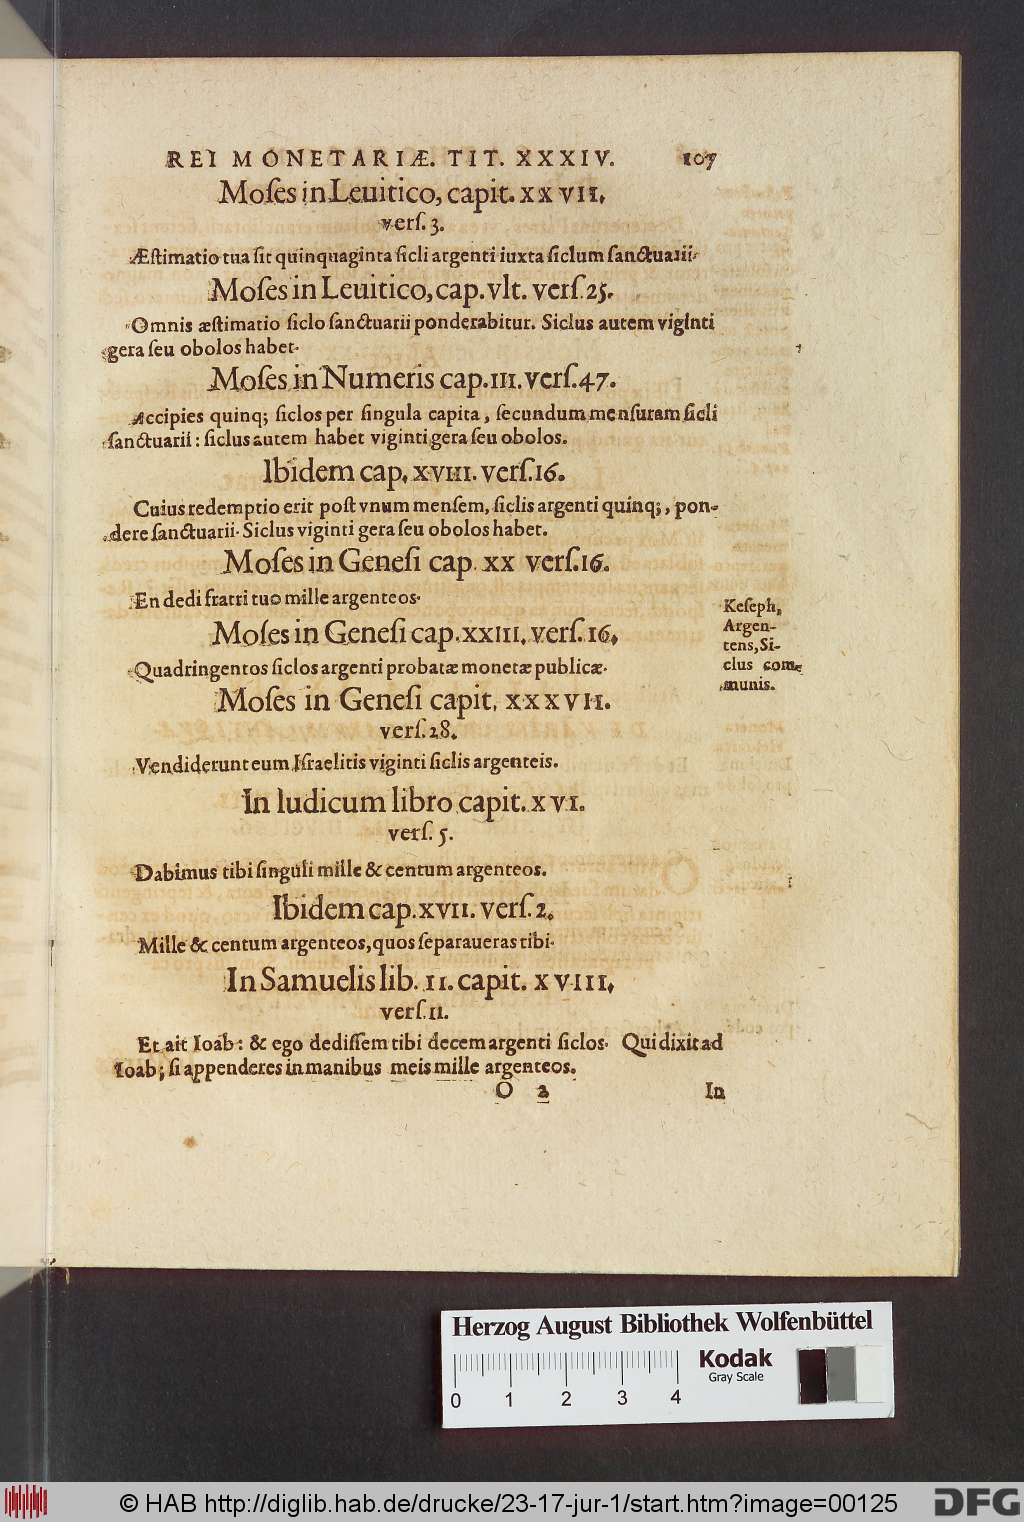 REI MONETARIÆ. TIT. XXXIV. 107
Moſes in Leuitico, capit. XXVII.
verſ. 3.
Æſtimatio tua ſit quinquaginta ſicli argenti iuxta ſiclum ſanctuarii.
Moſes in Leuitico, cap. vlt. verſ. 25.
Omnis æſtimatio ſiclo ſanctuarii ponderabitur. Siclus autem viginti
gera ſeu obolos habet.
Moſes in Numeris cap. III. verſ. 47.
Accipies quinq; ſiclos per ſingula capita, ſecundum menſuram ſicli
ſanctuarii: ſiclus autem habet viginti gera ſeu obolos.
Ibidem cap. XVIII. verſ. 16.
Cuius redemptio erit poſt vnum menſem, ſiclis argenti quinq;, pon-
dere ſanctuarii. Siclus viginti gera ſeu obolos habet.
Moſes in Geneſi cap. XX verſ. 16.
En dedi fratri tuo mille argenteos.
Keſeph,
Argen-
tens, Si-
clus com-
munis.
Moſes in Geneſi cap. XXIII. verſ. 16.
Quadringentos ſiclos argenti probatæ monetæ publicæ.
Moſes in Geneſi capit. XXXVII.
verſ. 28.
Vendiderunt eum Iſraelitis viginti ſiclis argenteis.
In Iudicum libro capit. XVI.
verſ. 5.
Dabimus tibi ſinguli mille & centum argenteos.
Ibidem cap. XVII. verſ. 2.
Mille & centum argenteos, quos ſeparaueras tibi.
In Samuelis lib. II. capit. XVIII.
verſ. 11.
Et ait Ioab: & ego dediſſem tibi decem argenti ſiclos. Qui dixit ad
Ioab; ſi appenderes in manibus meis mille argenteos.
O 2 In
Herzog August Bibliothek Wolfenbüttel
0 1 2 3 4
Kodak
Gray Scale
© HAB http://diglib.hab.de/drucke/23-17-jur-1/start.htm?image=00125
DFG